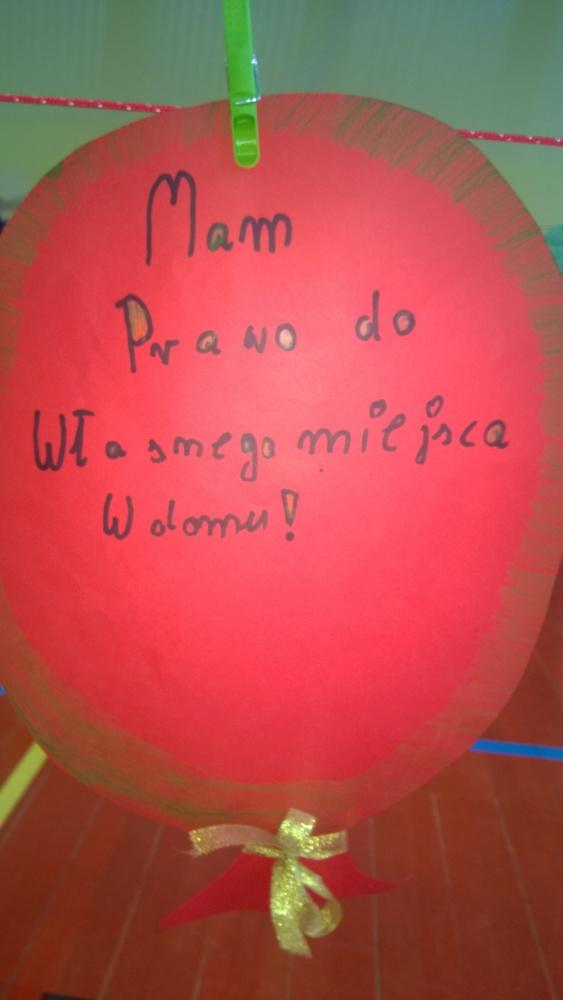 Mam
Prawo do
Własnego miejsca
W domu!